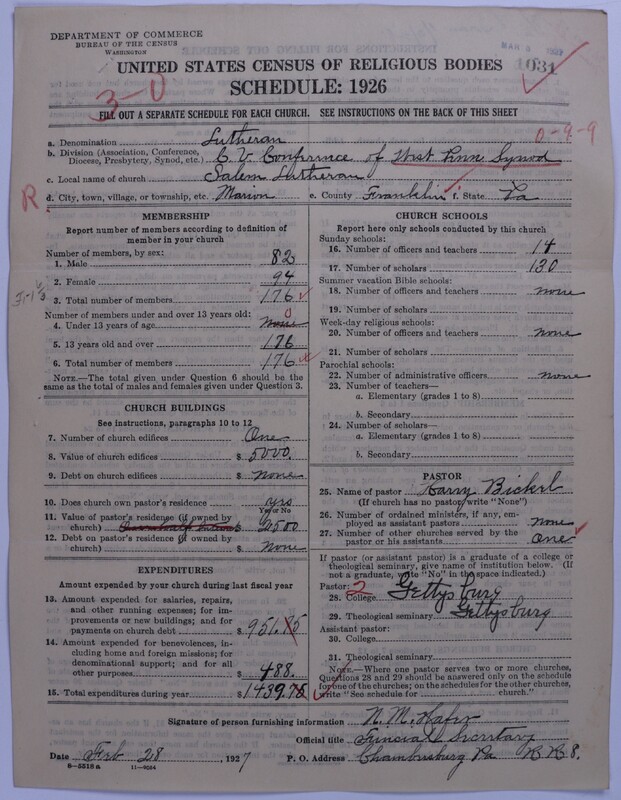 DEPARTMENT OF COMMERCE
BUREAU OF THE CENSUS
WASHINGTON
UNITED STATES CENSUS OF RELIGIOUS BODIES
1031
SCHEDULE: 1926
3-0
FILL OUT A SEPARATE SCHEDULE FOR EACH CHURCH. SEE INSTRUCTIONS ON THE BACK OF THIS SHEET
a. Denomination Lutheran
0-9-9
b. Division (Association, Conference, Diocese, Presbytery, Synod, etc.) C. V. Conference of West Penn. Synod
c. Local name of church Salem Lutheran
R
d. City, town, village, or township, etc. Marion e. County Franklin f. State Pa
MEMBERSHIP
Report number of members according to definition of
member in your church
Number of members, by sex:
1. Male 82
2. Female 94
3. Total number of members 176
Number of members under and over 13 years old: 0
4. Under 13 years of age None
5. 13 years old and over 176
6. Total number of members 176
NOTE.—The total given under Question 6 should be
same as the total of males and females given under Question 3.
CHURCH BUILDINGS
See instructions, paragraphs 10 to 12
7. Number of church edifices One
8. Value of church edifices $ 5000.
9. Debt on church edifices $ None
10. Does church own pastor's residence yes
Yes or No
11. Value of pastor's residence (if owned by
church) $ 2500
12. Debt on pastor's residence (if owned by
church) $ None
EXPENDITURES
Amount expended by your church during last fiscal year
13. Amount expended for salaries, repairs,
and other running expenses; for im-
provements or new buildings; and for
payments on church debt $ 951.
14. Amount expended for benevolences, in-
cluding home and foreign missions; for
denominational support; and for all
other purposes $ 488.
15. Total expenditures during year $ 1439.75
CHURCH SCHOOLS
Report here only schools conducted by this church
Sunday schools:
16. Number of officers and teachers 14
17. Number of scholars 130
Summer vacation Bible schools:
18. Number of officers and teachers none
19. Number of scholars
Week-day religious schools:
20. Number of officers and teachers none
21. Number of scholars
Parochial schools:
22. Number of administrative officers none
23. Number of teachers—
a. Elementary (grades 1 to 8)
b. Secondary
24. Number of scholars—
a. Elementary (grades 1 to 8)
b. Secondary
PASTOR
25. Name of pastor Harry Bickel
(If church has no pastor, write "None")
26. Number of ordained ministers, if any, em-
ployed as assistant pastors none
27. Number of other churches served by the
pastor or his assistants One
If pastor (or assistant pastor) is a graduate of a college or
theological seminary, give name of institution below. (If
not a graduate, write "No" in the space indicated.)
Pastor: 2
28. College Gettysburg
29. Theological seminary Gettysburg
Assistant pastor:
30. College
31. Theological seminary
NOTE.—Where one pastor serves two or more churches,
Questions 28 and 29 should be answered only on the schedule
for one of the churches; on the schedules for the other churches,
write "See schedule for church."
Signature of person furnishing information N. M.
Official title Financial Secretary
Date Feb 28, 1927 P. O. Address Chambersburg Pa R R 8.
8-5318a 11-9034